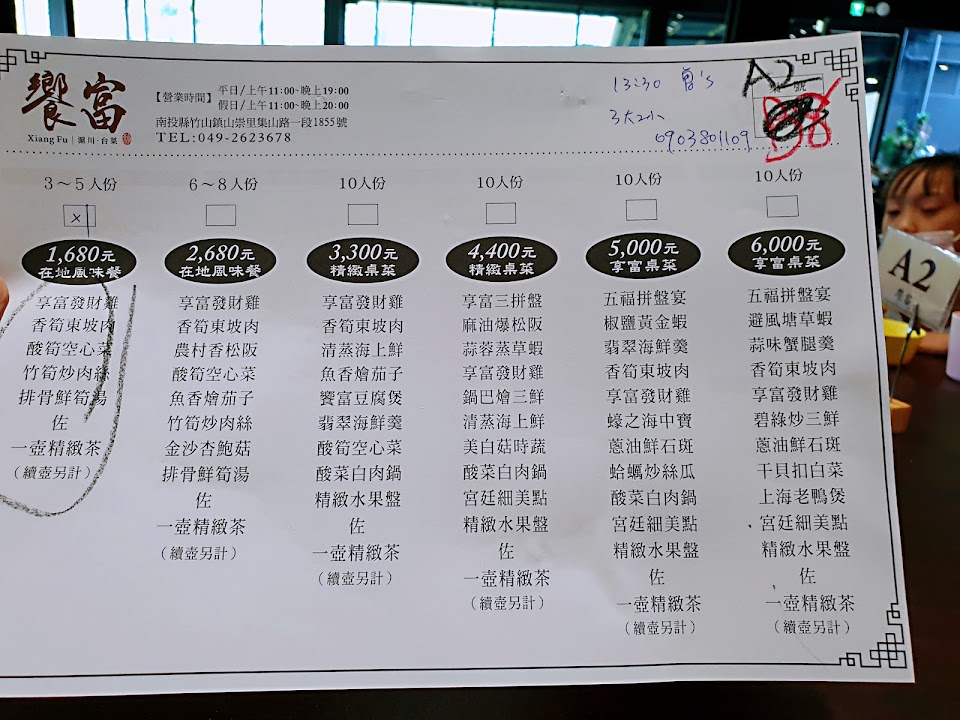 饗富
Xiang Fu | 瀧川·台菜
【營業時間】
平日/上午11:00~晚上19:00
假日/上午11:00~晚上20:00
南投縣竹山鎮山崇里集山路一段1855號
TEL:049-2623678
13:30 曾's
3大2小
0903801109
A2
桌號
3～5人份
x
1,680元
在地風味餐
享富發財雞
香筍東坡肉
酸筍空心菜
竹筍炒肉絲
排骨鮮筍湯
佐
一壺精緻茶
(續壺另計)
6～8人份
2,680元
在地風味餐
享富發財雞
香筍東坡肉
農村香松阪
酸筍空心菜
魚香燴茄子
竹筍炒肉絲
金沙杏鮑菇
排骨鮮筍湯
佐
一壺精緻茶
(續壺另計)
10人份
3,300元
精緻桌菜
享富發財雞
香筍東坡肉
清蒸海上鮮
魚香燴茄子
饗富豆腐煲
翡翠海鮮羹
酸筍空心菜
酸菜白肉鍋
精緻水果盤
佐
一壺精緻茶
(續壺另計)
10人份
4,400元
精緻桌菜
享富三拼盤
麻油爆松阪
蒜蓉蒸草蝦
享富發財雞
鍋巴燴三鮮
清蒸海上鮮
美白菇時蔬
酸菜白肉鍋
宮廷細美點
精緻水果盤
佐
一壺精緻茶
(續壺另計)
10人份
5,000元
享富桌菜
五福拼盤宴
椒鹽黃金蝦
翡翠海鮮羹
香筍東坡肉
享富發財雞
蠔之海中寶
蔥油鮮石斑
蛤蠣炒絲瓜
酸菜白肉鍋
宮廷細美點
精緻水果盤
佐
一壺精緻茶
(續壺另計)
10人份
6,000元
享富桌菜
五福拼盤宴
避風塘草蝦
蒜味蟹腿羹
香筍東坡肉
享富發財雞
碧綠炒三鮮
蔥油鮮石斑
干貝扣白菜
上海老鴨煲
宮廷細美點
精緻水果盤
佐
一壺精緻茶
(續壺另計)
A2